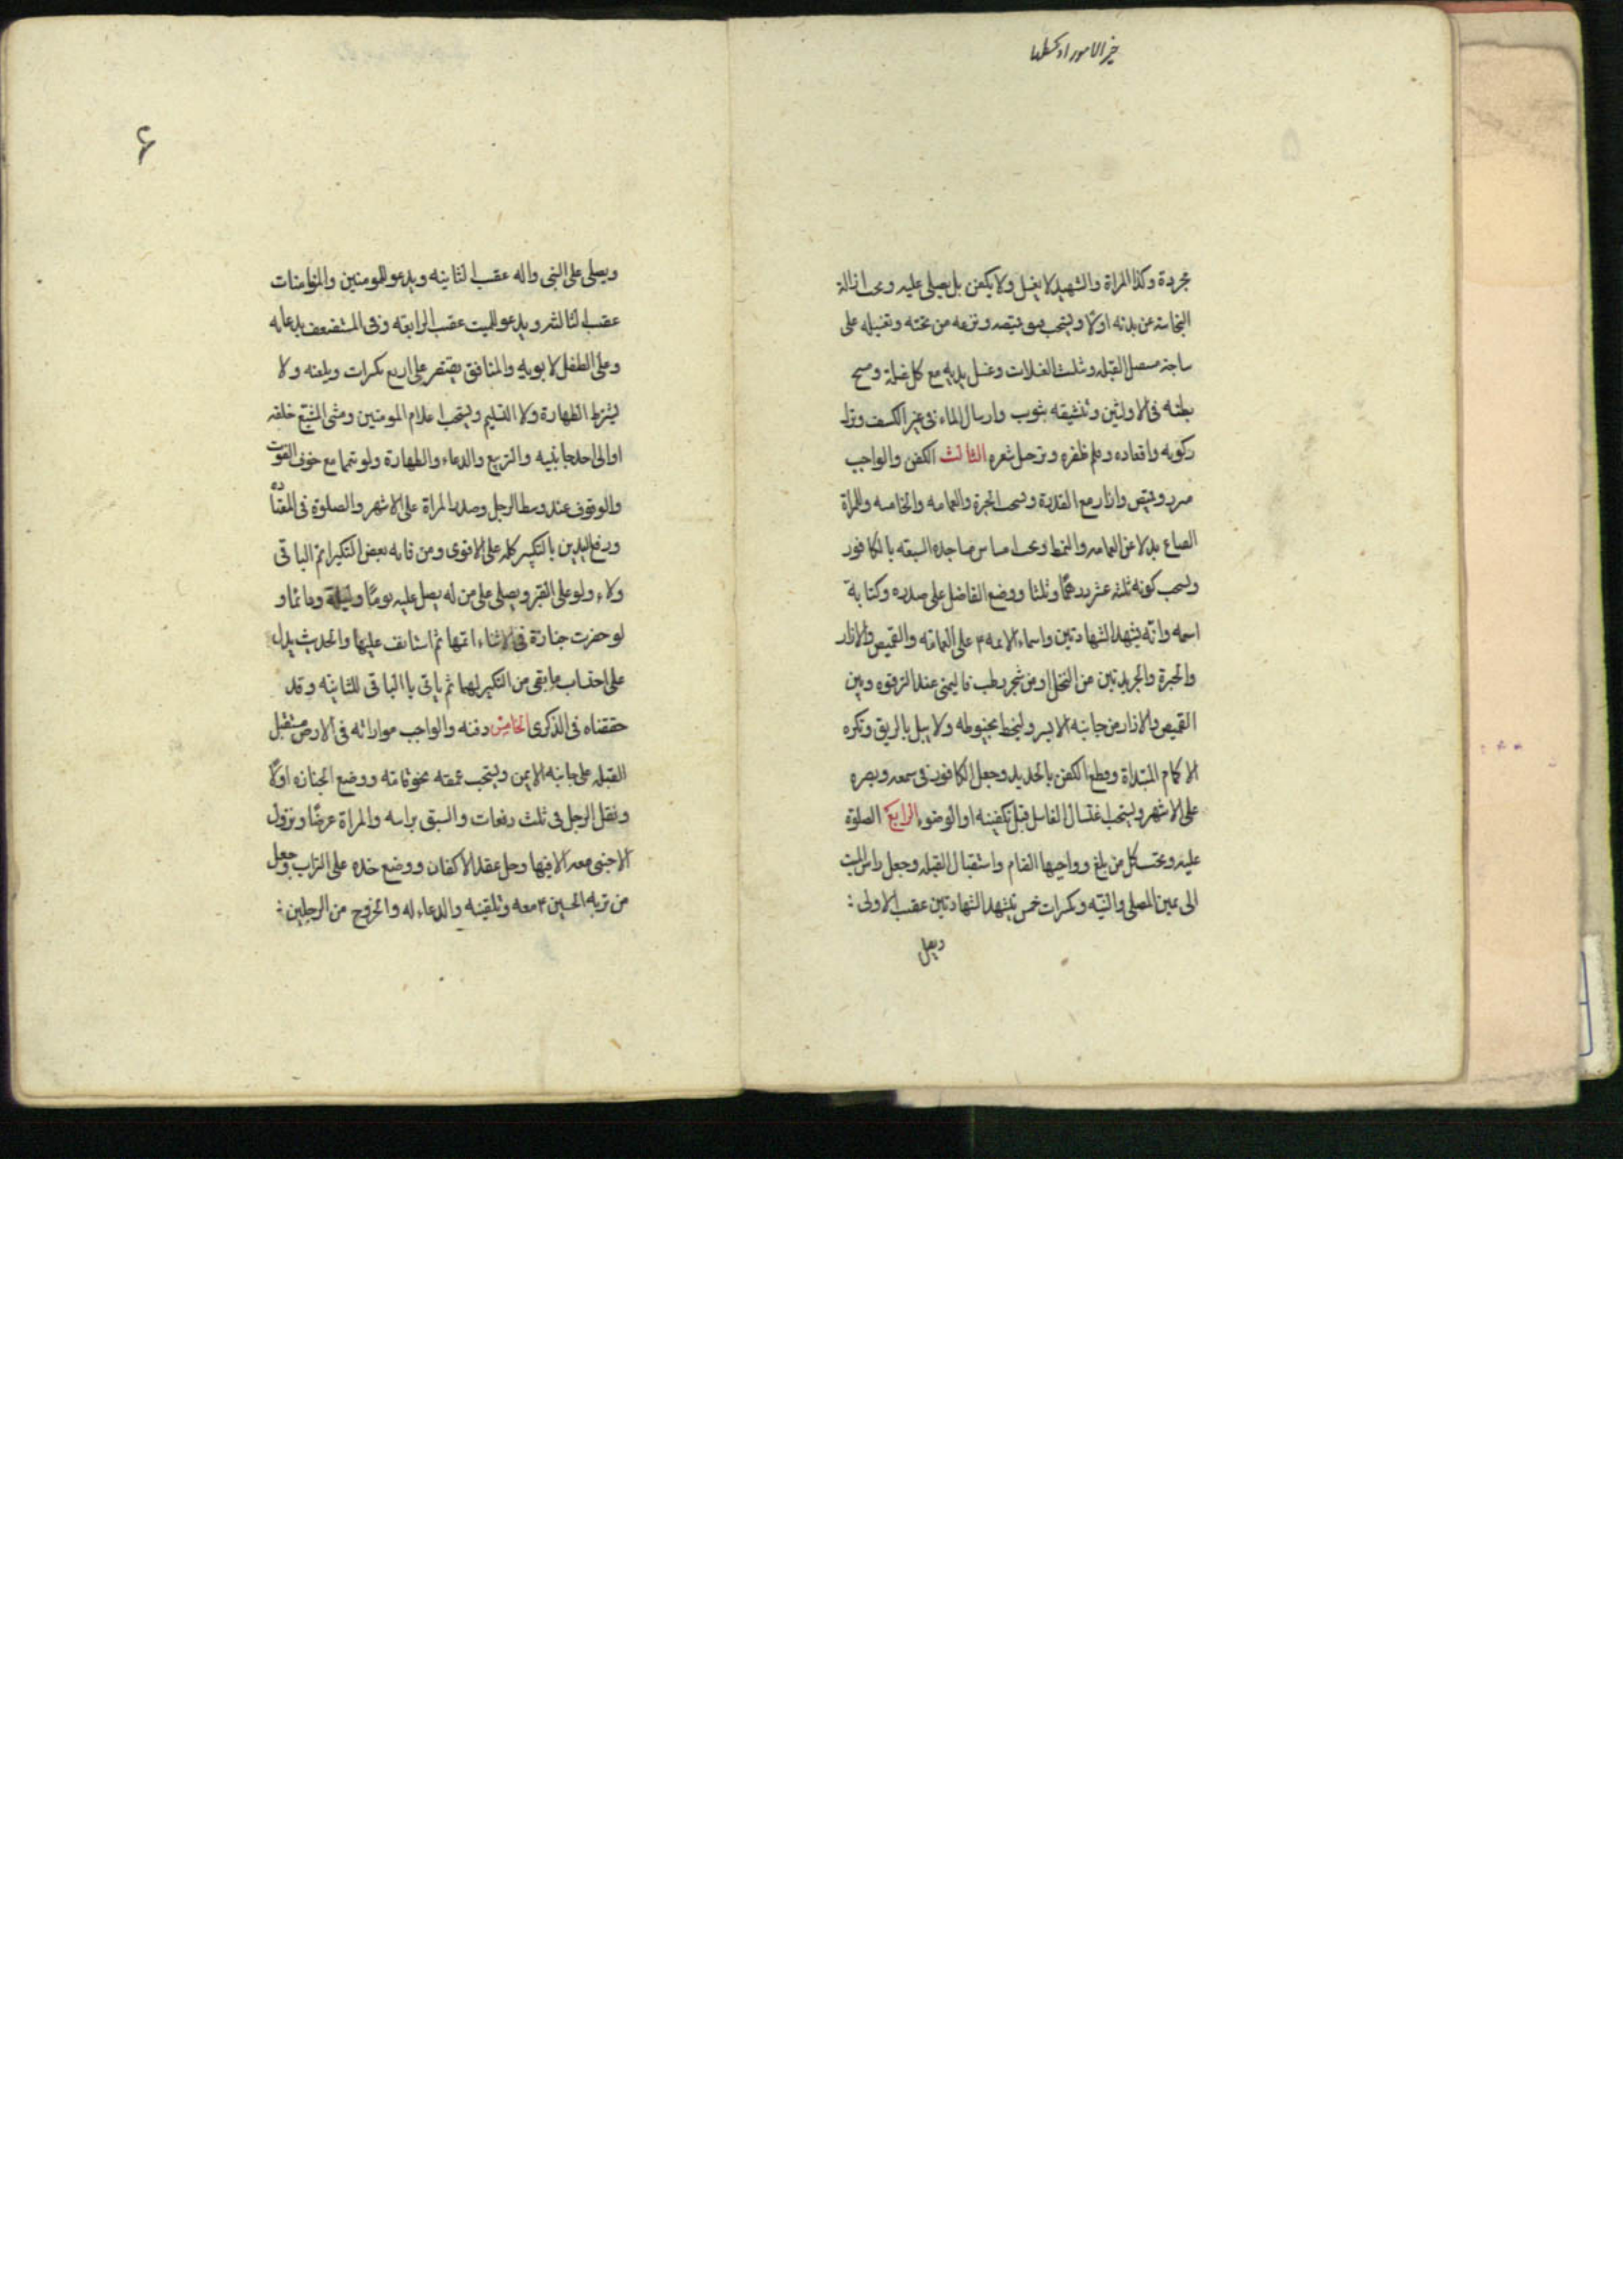 خير الامور اوسطها
مجردة وكذا المراة والشهيد لا يغسل ولا يكفن بل يصلى عليه ويجب ازالة
النجاسة عن بدنه اولا ويستحب فتق قميصه ونزعه من تحته وتغسيله على
ساجة مستقبل القبله وتثليث الغسلات وغسل يديه مع كل غسلة ومسح
بطنه فى الاوليين وتنشيفه بثوب وارسال الماء فى غير الكنيف وترك
ركوبه واقعاده وقلم ظفره وترجيل شعره الثالث الكفن والواجب
مئزر وقميص وازار مع القدرة ويستحب الحبرة والعمامه والخامسه وللمراة
القناع بدلا عن العمامه والنمط ويجب امساس مساجده السبعه بالكافور
ويستحب كونه ثلثه عشر درهمًا وثلثا ووضع الفاضل على صدره وكتابة
اسمه وانّه يشهد الشهادتين واسماء الائمه ۴ على العمامه والقميص والازار
والحبرة والجريدتين من النخل او من شجر رطب فاليمنى عند الترقوه وبين
القميص والازار من جانبه الايسر وليخط بخيوطه ولا يبل بالريق وتكره
الاكمام المبتداة وقطع الكفن بالحديد وجعل الكافور فى سمعه وبصره
على الاشهر ويستحب اغتسال الغاسل قبل تكفينه او الوضوء الرابع الصلوة
عليه ويجب على كل من بلغ وواجبها القيام واستقبال القبله وجعل راس الميت
الى يمين المصلى والنيّه وتكبيرات خمس يتشهد الشهادتين عقيب الاولى :
ويصلى
۶
ويصلى على النبى واله عقيب الثانيه ويدعو للمومنين والمؤمنات
عقيب الثالثه ويدعو للميت عقيب الرابعه وفى المستضعف بدعائه
وعلى الطفل لابويه والمنافق يقتصر على اربع تكبيرات ويلعنه ولا
يشترط الطهارة ولا التسليم ويستحب اعلام المومنين ومشى المشيّع خلفه
او الى احد جانبيه والتربيع والدعاء والطهارة ولو تيمما مع خوف الفوت
والوقوف عند وسط الرجل وصدر المراة على الاشهر والصلوة فى المعتادة
ورفع اليدين بالتكبير كله على الاقوى ومن فاته بعض التكبير اتم الباقى
ولاء ولو على القبر ويصلى على من لم يصل عليه يومًا وليلة ودائما و
لو حضرت جنازة فى الاثناء اتمها ثم استانف عليها والحديث يدل
على احتساب ما بقى من التكبير لهما ثم ياتى با الباقى للثانيّه وقد
حققناه فى الذكرى الخامس دفنه والواجب مواراته فى الارض مستقبل
القبله على جانبه الايمن ويستحب عمقه نحو قامته ووضع الجنازه اولًا
ونقل الرجل فى ثلث دفعات والسبق براسه والمراة عرضًا ونزول
الاجنبى معه الا فيها وحل عقد الاكفان ووضع خده على التراب وجعل
من تربه الحسين ۴ معه وتلقينه والدعاء له والخروج من الرجلين :